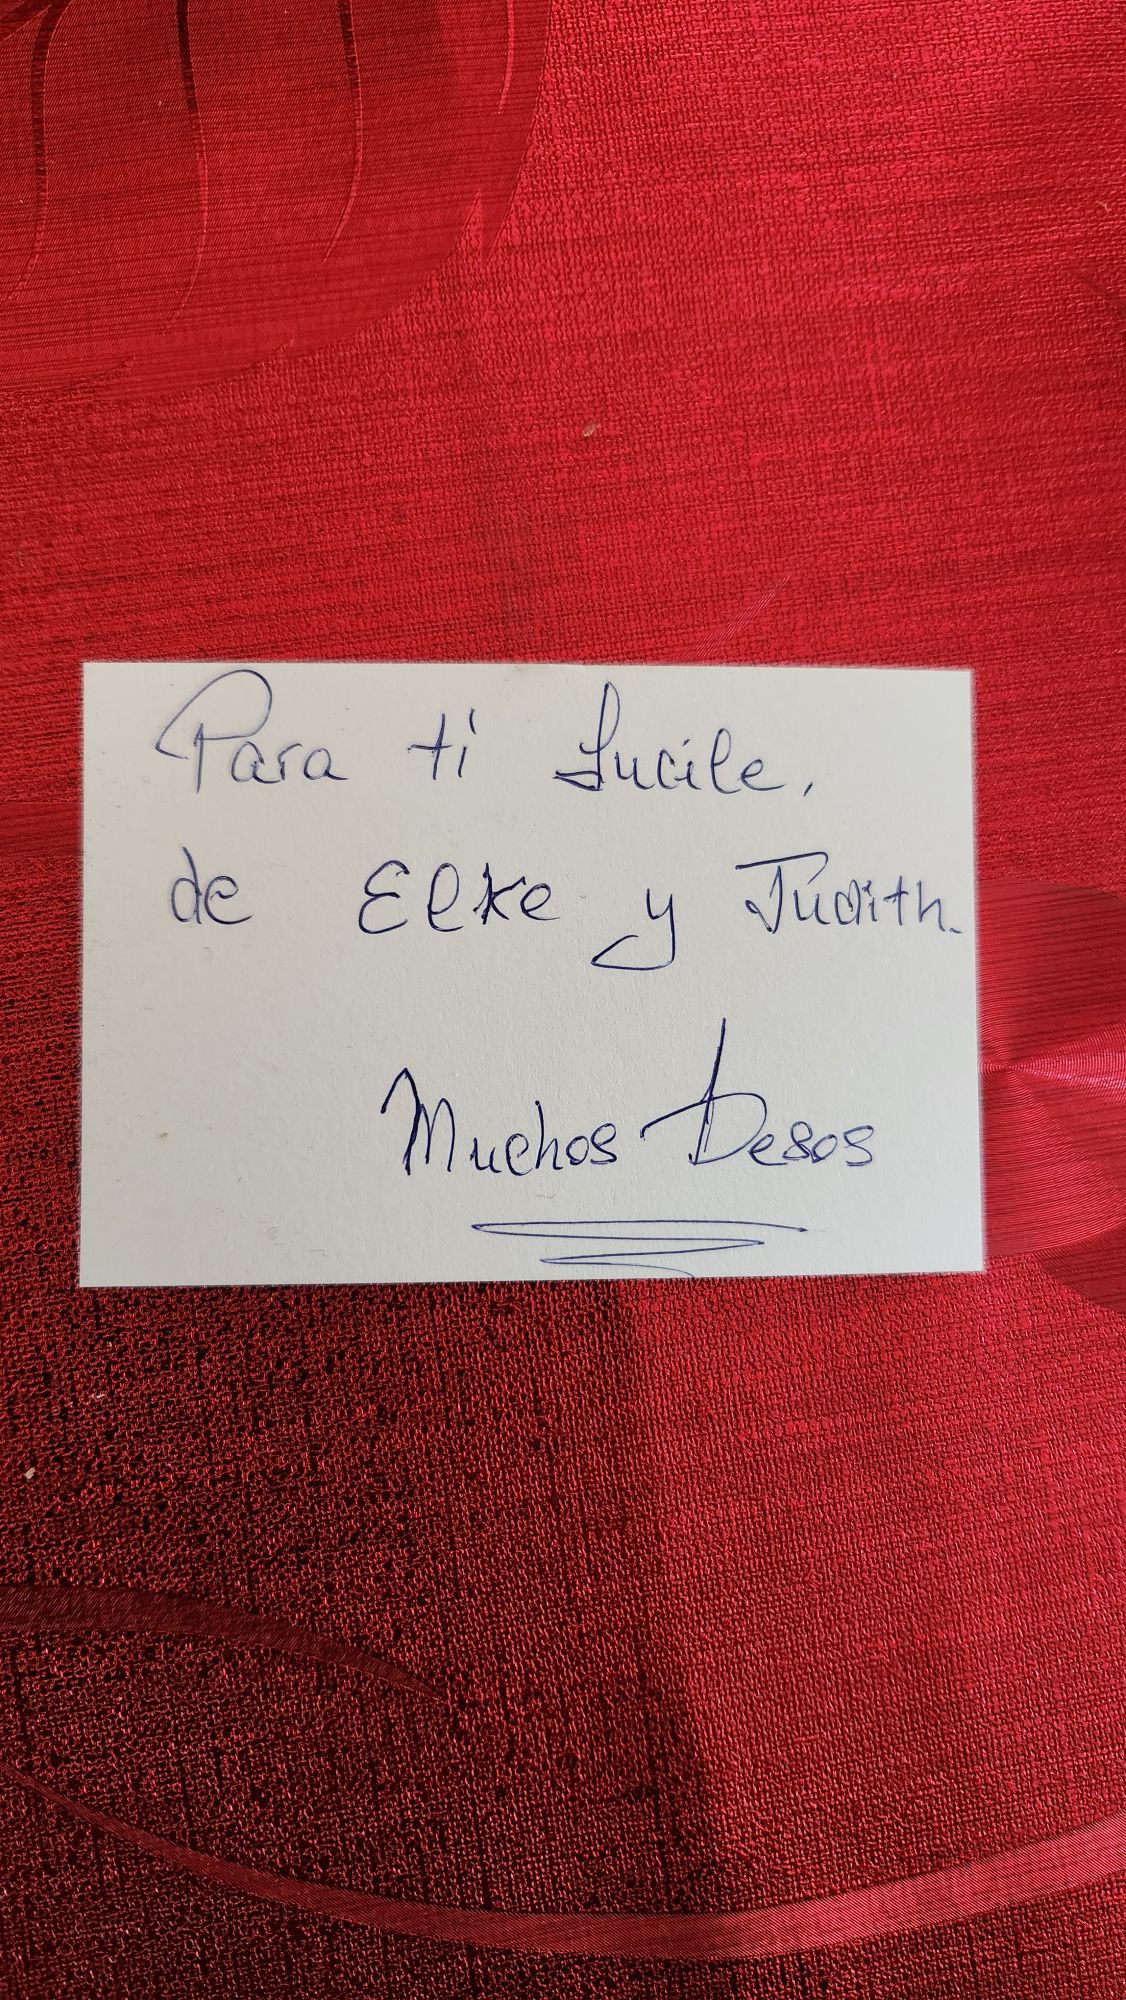 Para ti Lucile,
de Elke y Judith.
Muchos besos